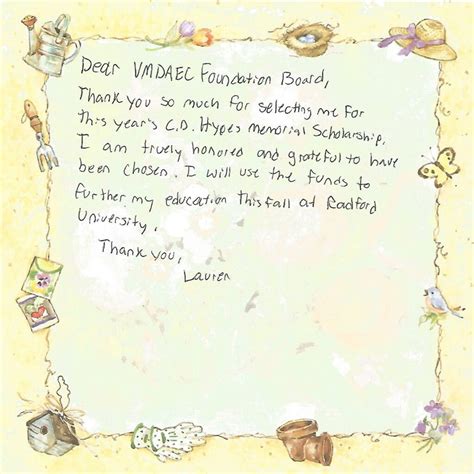 Dear VMDAEC Foundation Board,
Thank you so much for selecting me for
this year's C.D. Hypes Memorial Scholarship.
I am truely honored and grateful to have
been chosen. I will use the funds to
further my education this fall at Radford
University.
Thank you,
Lauren